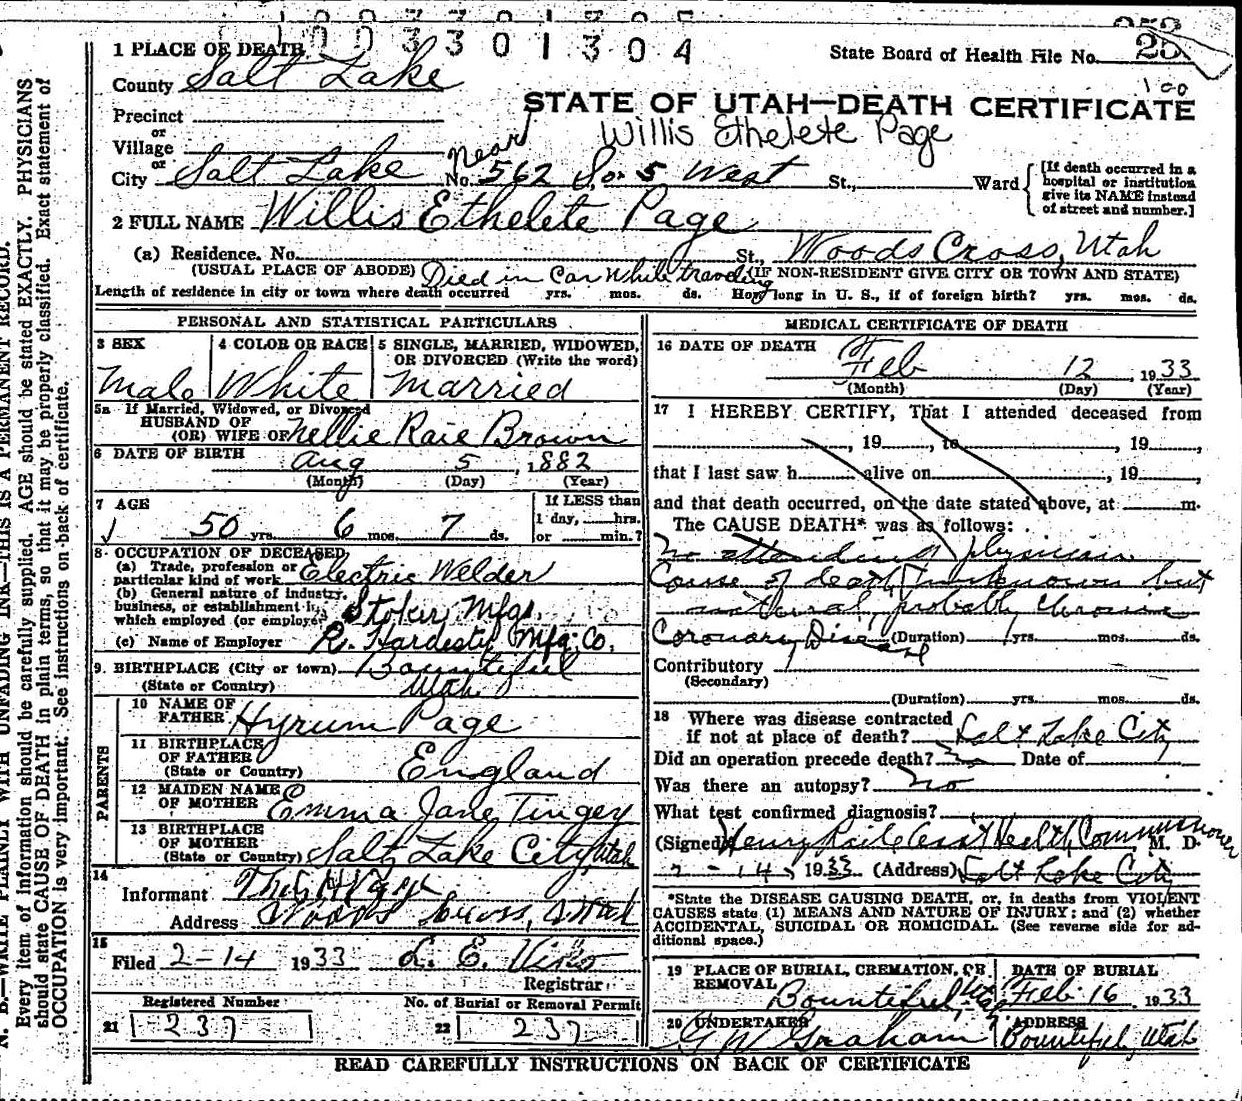 1003301304
1 PLACE OF DEATH
State Board of Health File No.
County Salt Lake
STATE OF UTAH—DEATH CERTIFICATE
Precinct
Willis Ethelete Page
or
Village
or
Near
City Salt Lake No. 562 So. 5 West St., Ward
[If death occurred in a hospital or institution give its NAME instead of street and number.]
2 FULL NAME Willis Ethelete Page
(a) Residence. No. St., Woods Cross, Utah
(USUAL PLACE OF ABODE) Died in Car While traveling (IF NON-RESIDENT GIVE CITY OR TOWN AND STATE)
Length of residence in city or town where death occurred yrs. mos. ds. How long in U. S., if of foreign birth? yrs. mos. ds.
PERSONAL AND STATISTICAL PARTICULARS
3 SEX
Male
4 COLOR OR RACE
White
5 SINGLE, MARRIED, WIDOWED,
OR DIVORCED (Write the word)
Married
5a If Married, Widowed, or Divorced
HUSBAND OF
(OR) WIFE OF Nellie Raie Brown
6 DATE OF BIRTH Aug 5, 1882
(Month) (Day) (Year)
7 AGE
50 yrs. 6 mos. 7 ds.
If LESS than
1 day, hrs.
or min.?
8 OCCUPATION OF DECEASED
(a) Trade, profession or
particular kind of work Electric Welder
(b) General nature of industry,
business, or establishment in
which employed (or employer) Stoker Mfgs.
(c) Name of Employer R. Hardesty Mfg. Co.
9. BIRTHPLACE (City or town) Bountiful
(State or Country) Utah
PARENTS
10 NAME OF
FATHER Hyrum Page
11 BIRTHPLACE
OF FATHER
(State or Country) England
12 MAIDEN NAME
OF MOTHER Emma Jane Tingey
13 BIRTHPLACE
OF MOTHER
(State or Country) Salt Lake City, Utah
14
Informant
Address Woods Cross, Utah
15
Filed 2-14 1933 L. E. Viko
Registrar
Registered Number
21 237
No. of Burial or Removal Permit
22 237
MEDICAL CERTIFICATE OF DEATH
16 DATE OF DEATH Feb 12, 1933
(Month) (Day) (Year)
17 I HEREBY CERTIFY, That I attended deceased from
, 19 , to , 19
that I last saw h alive on , 19
and that death occurred, on the date stated above, at m.
The CAUSE DEATH* was as follows:
no attending physician
Cause of death unknown but
natural, probably chronic
Coronary Disease (Duration) yrs. mos. ds.
Contributory
(Secondary)
(Duration) yrs. mos. ds.
18 Where was disease contracted
if not at place of death? Salt Lake City
Did an operation precede death? no Date of
Was there an autopsy? no
What test confirmed diagnosis?
(Signed) Henry Raile Asst Health Commissioner, M. D.
2-14, 1933 (Address) Salt Lake City
*State the DISEASE CAUSING DEATH, or, in deaths from VIOLENT
CAUSES state (1) MEANS AND NATURE OF INJURY; and (2) whether
ACCIDENTAL, SUICIDAL OR HOMICIDAL. (See reverse side for ad-
ditional space.)
19 PLACE OF BURIAL, CREMATION, OR
REMOVAL
Bountiful, Utah
DATE OF BURIAL
Feb 16 1933
20 UNDERTAKER
Graham
ADDRESS
Bountiful, Utah
READ CAREFULLY INSTRUCTIONS ON BACK OF CERTIFICATE
N. B.—WRITE PLAINLY WITH UNFADING INK—THIS IS A PERMANENT RECORD.
Every item of information should be carefully supplied. AGE should be stated EXACTLY. PHYSICIANS
should state CAUSE OF DEATH in plain terms, so that it may be properly classified. Exact statement of
OCCUPATION is very important. See instructions on back of certificate.